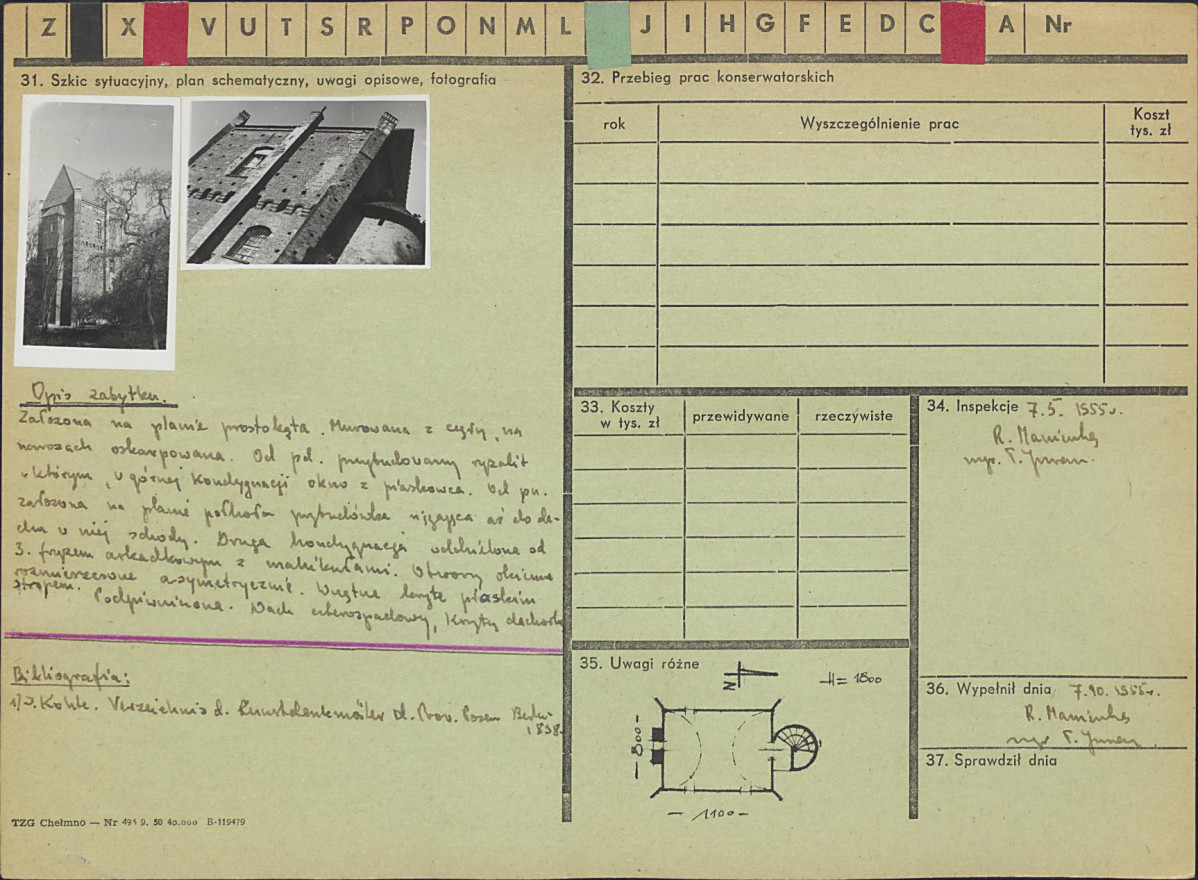 Z X V U T S R P O N M L J I H G F E D C A Nr
31. Szkic sytuacyjny, plan schematyczny, uwagi opisowe, fotografia
Opis zabytku.
Założona na planie prostokąta. Murowana z cegły, na
narożach oskarpowana. Od pd. przybudowany ryzalit
w którym, w górnej kondygnacji okno z piaskowca. Od pn.
założona na planie półkola przybudówka sięgająca aż do da-
chu w niej schody. Druga kondygnacja oddzielona od
3. fryzem arkadkowym z maszkulami. Otwory okienne
rozmieszczone asymetrycznie. Wnętrze kryte płaskim
stropem. Podpiwniczona. Dach czterospadowy, kryty dachówk
Bibliografia:
1/J. Kohte. Verzeichnis d. Kunstdenkmäler d. Prov. Posen Berlin
1898.
TZG Chełmno — Nr 495 9. 50 40.000 B-119479
32. Przebieg prac konserwatorskich
rok
Wyszczególnienie prac
Koszt
tys. zł
33. Koszty
w tys. zł
przewidywane
rzeczywiste
34. Inspekcje 7.5. 1955r.
R.
mgr. T.
35. Uwagi różne
N
H= 1800
— 800 —
— 1100 —
36. Wypełnił dnia 7.10. 1955r.
R.
mgr T.
37. Sprawdził dnia